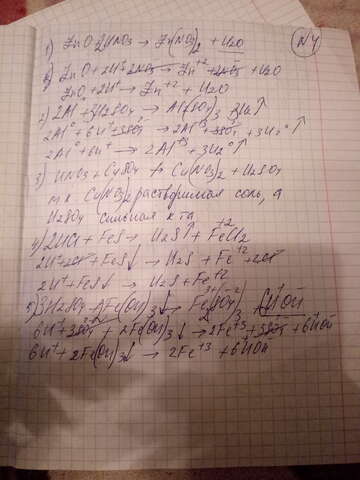 N4
1) ZnO 2HNO3 → Zn(NO3)2 + H2O
ZnO + 2H⁺ + 2NO3⁻ → Zn⁺² + 2NO3⁻ + H2O
ZnO + 2H⁺ → Zn⁺² + H2O
2) 2Al + 3H2SO4 → Al2(SO4)3 3H2↑
2Al⁰ + 6H⁺ + 3SO4⁻ → 2Al⁺³ + 3SO4⁻ + 3H2⁰↑
2Al⁰ + 6H⁺ → 2Al⁺³ + 3H2⁰↑
3) HNO3 + CuSO4 ↛ Cu(NO3)2 + H2SO4
т.к Cu(NO3)2 растворимая соль, а
H2SO4 сильная к-та
4) 2HCl + FeS → H2S↑ + FeCl2
2H⁺ + 2Cl⁻ + FeS↓ → H2S + Fe⁺² + 2Cl⁻
2H⁺ + FeS↓ → H2S + Fe⁺²
5) 3H2SO4 + 2Fe(OH)3↓ → Fe2(SO4)3 6H⁺OH⁻
6H⁺ + 3SO4²⁻ + 2Fe(OH)3↓ → 2Fe⁺³ + 3SO4²⁻ + 6H⁺OH⁻
6H⁺ + 2Fe(OH)3↓ → 2Fe⁺³ + 6H⁺OH⁻